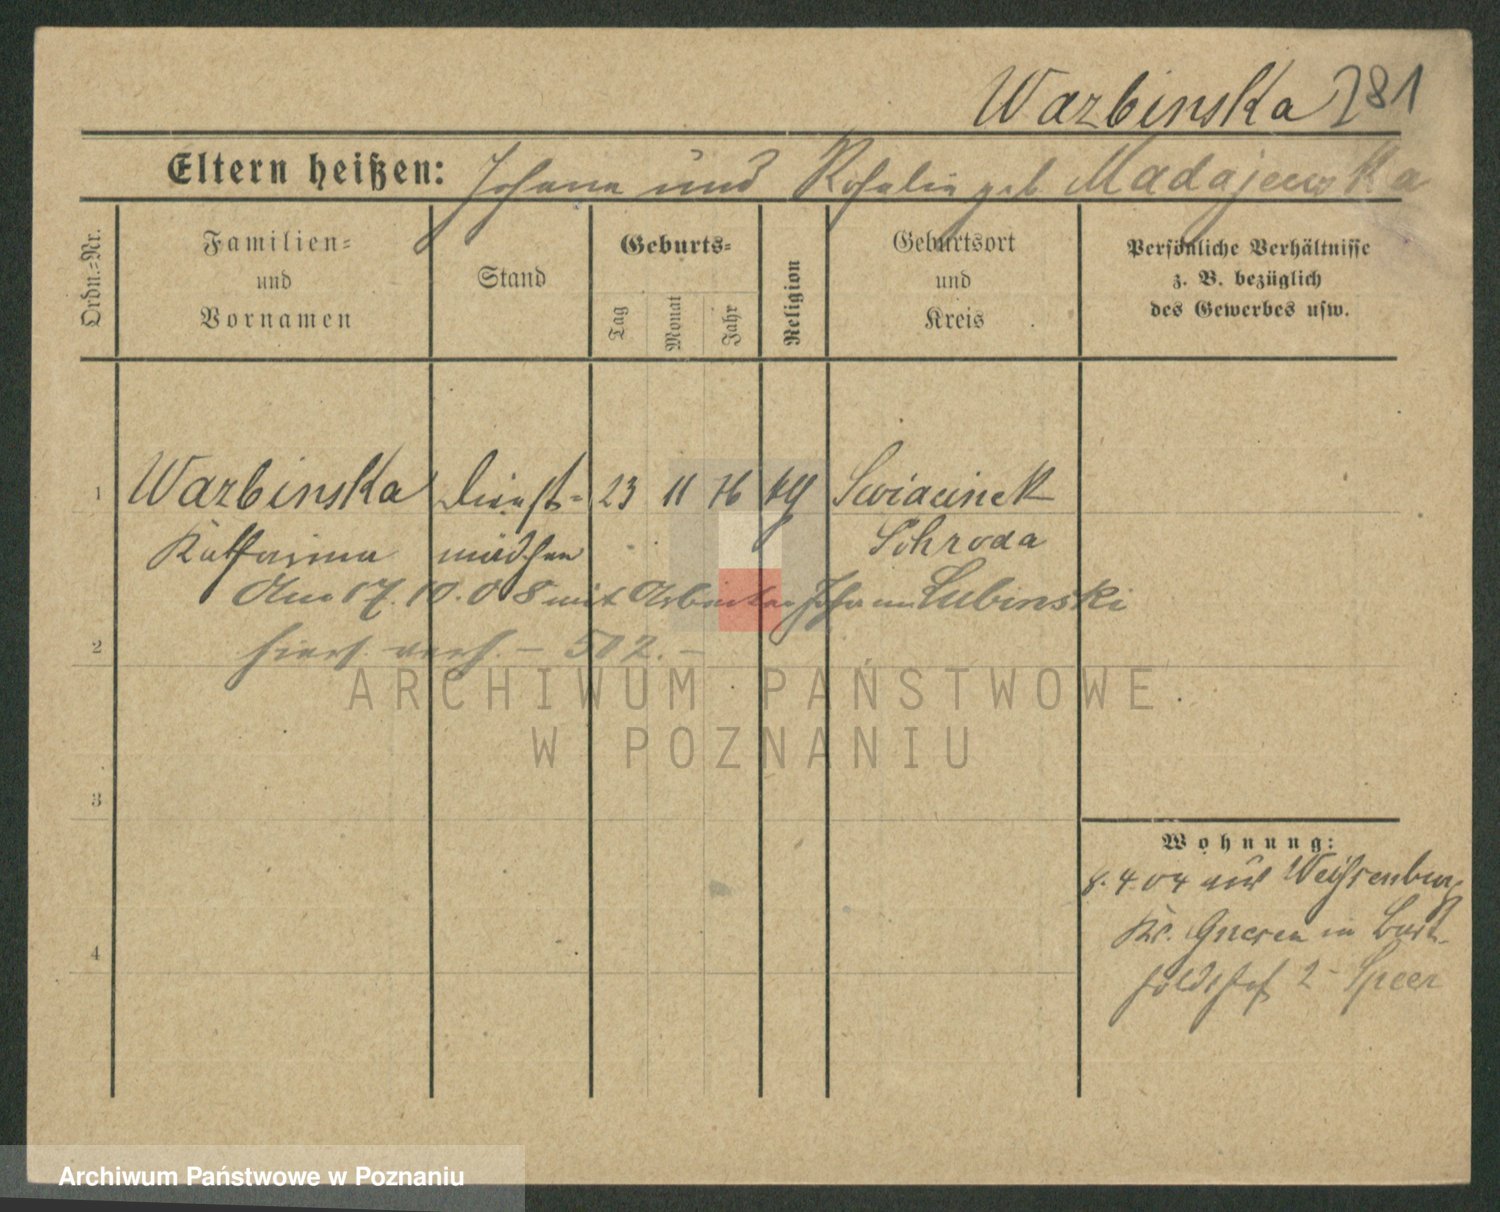 Wazbinska 281
Eltern heißen: Johann und Rosalie geb Madajewska
Ordn.=Nr.
Familien=
und
Vornamen
Stand
Geburts=
Tag
Monat
Jahr
Religion
Geburtsort
und
Kreis
Persönliche Verhältnisse
z. B. bezüglich
des Gewerbes usw.
1 Wazbinska Dienst= 23 11 76 kg Swiacinek
Katharina mädchen Schroda
Am 17. 10. 08 mit Arbeiter Johann Lubinski
2 hiers. verh. – 502. –
ARCHIWUM PAŃSTWOWE
W POZNANIU
3
Wohnung:
8. 4. 04 aus Weissenburg
Kr. Gnesen in Bert-
4 holdshof 2 - Speer
Archiwum Państwowe w Poznaniu